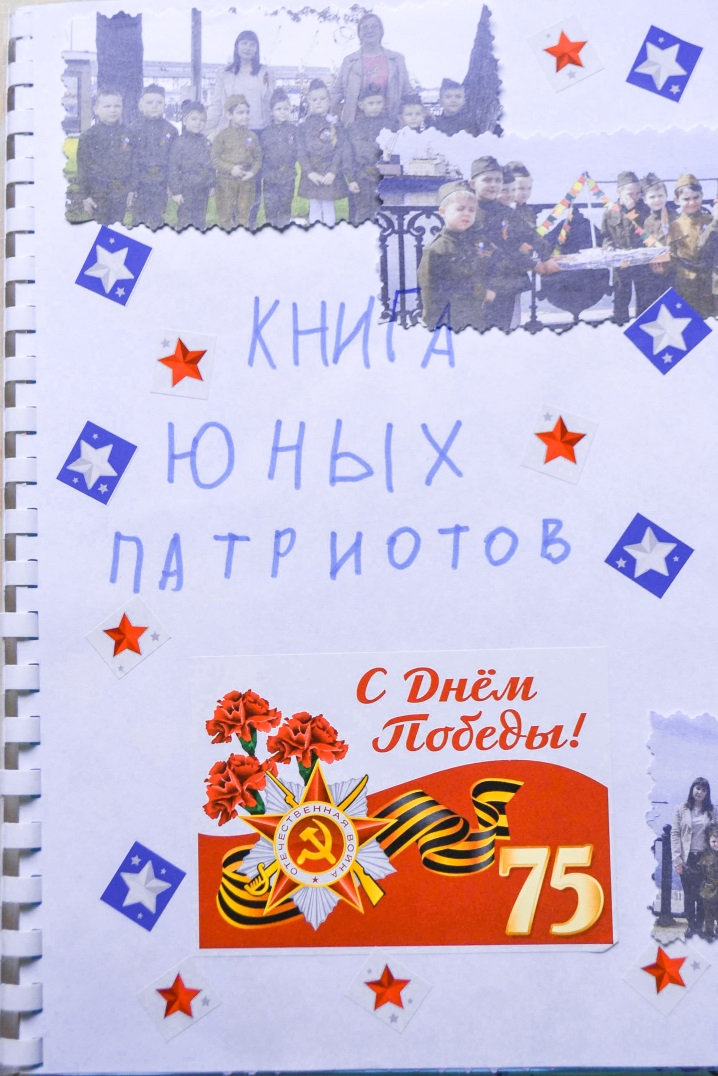 КНИГА
ЮНЫХ
ПАТРИОТОВ
С Днём
Победы!
ОТЕЧЕСТВЕННАЯ ВОЙНА
75